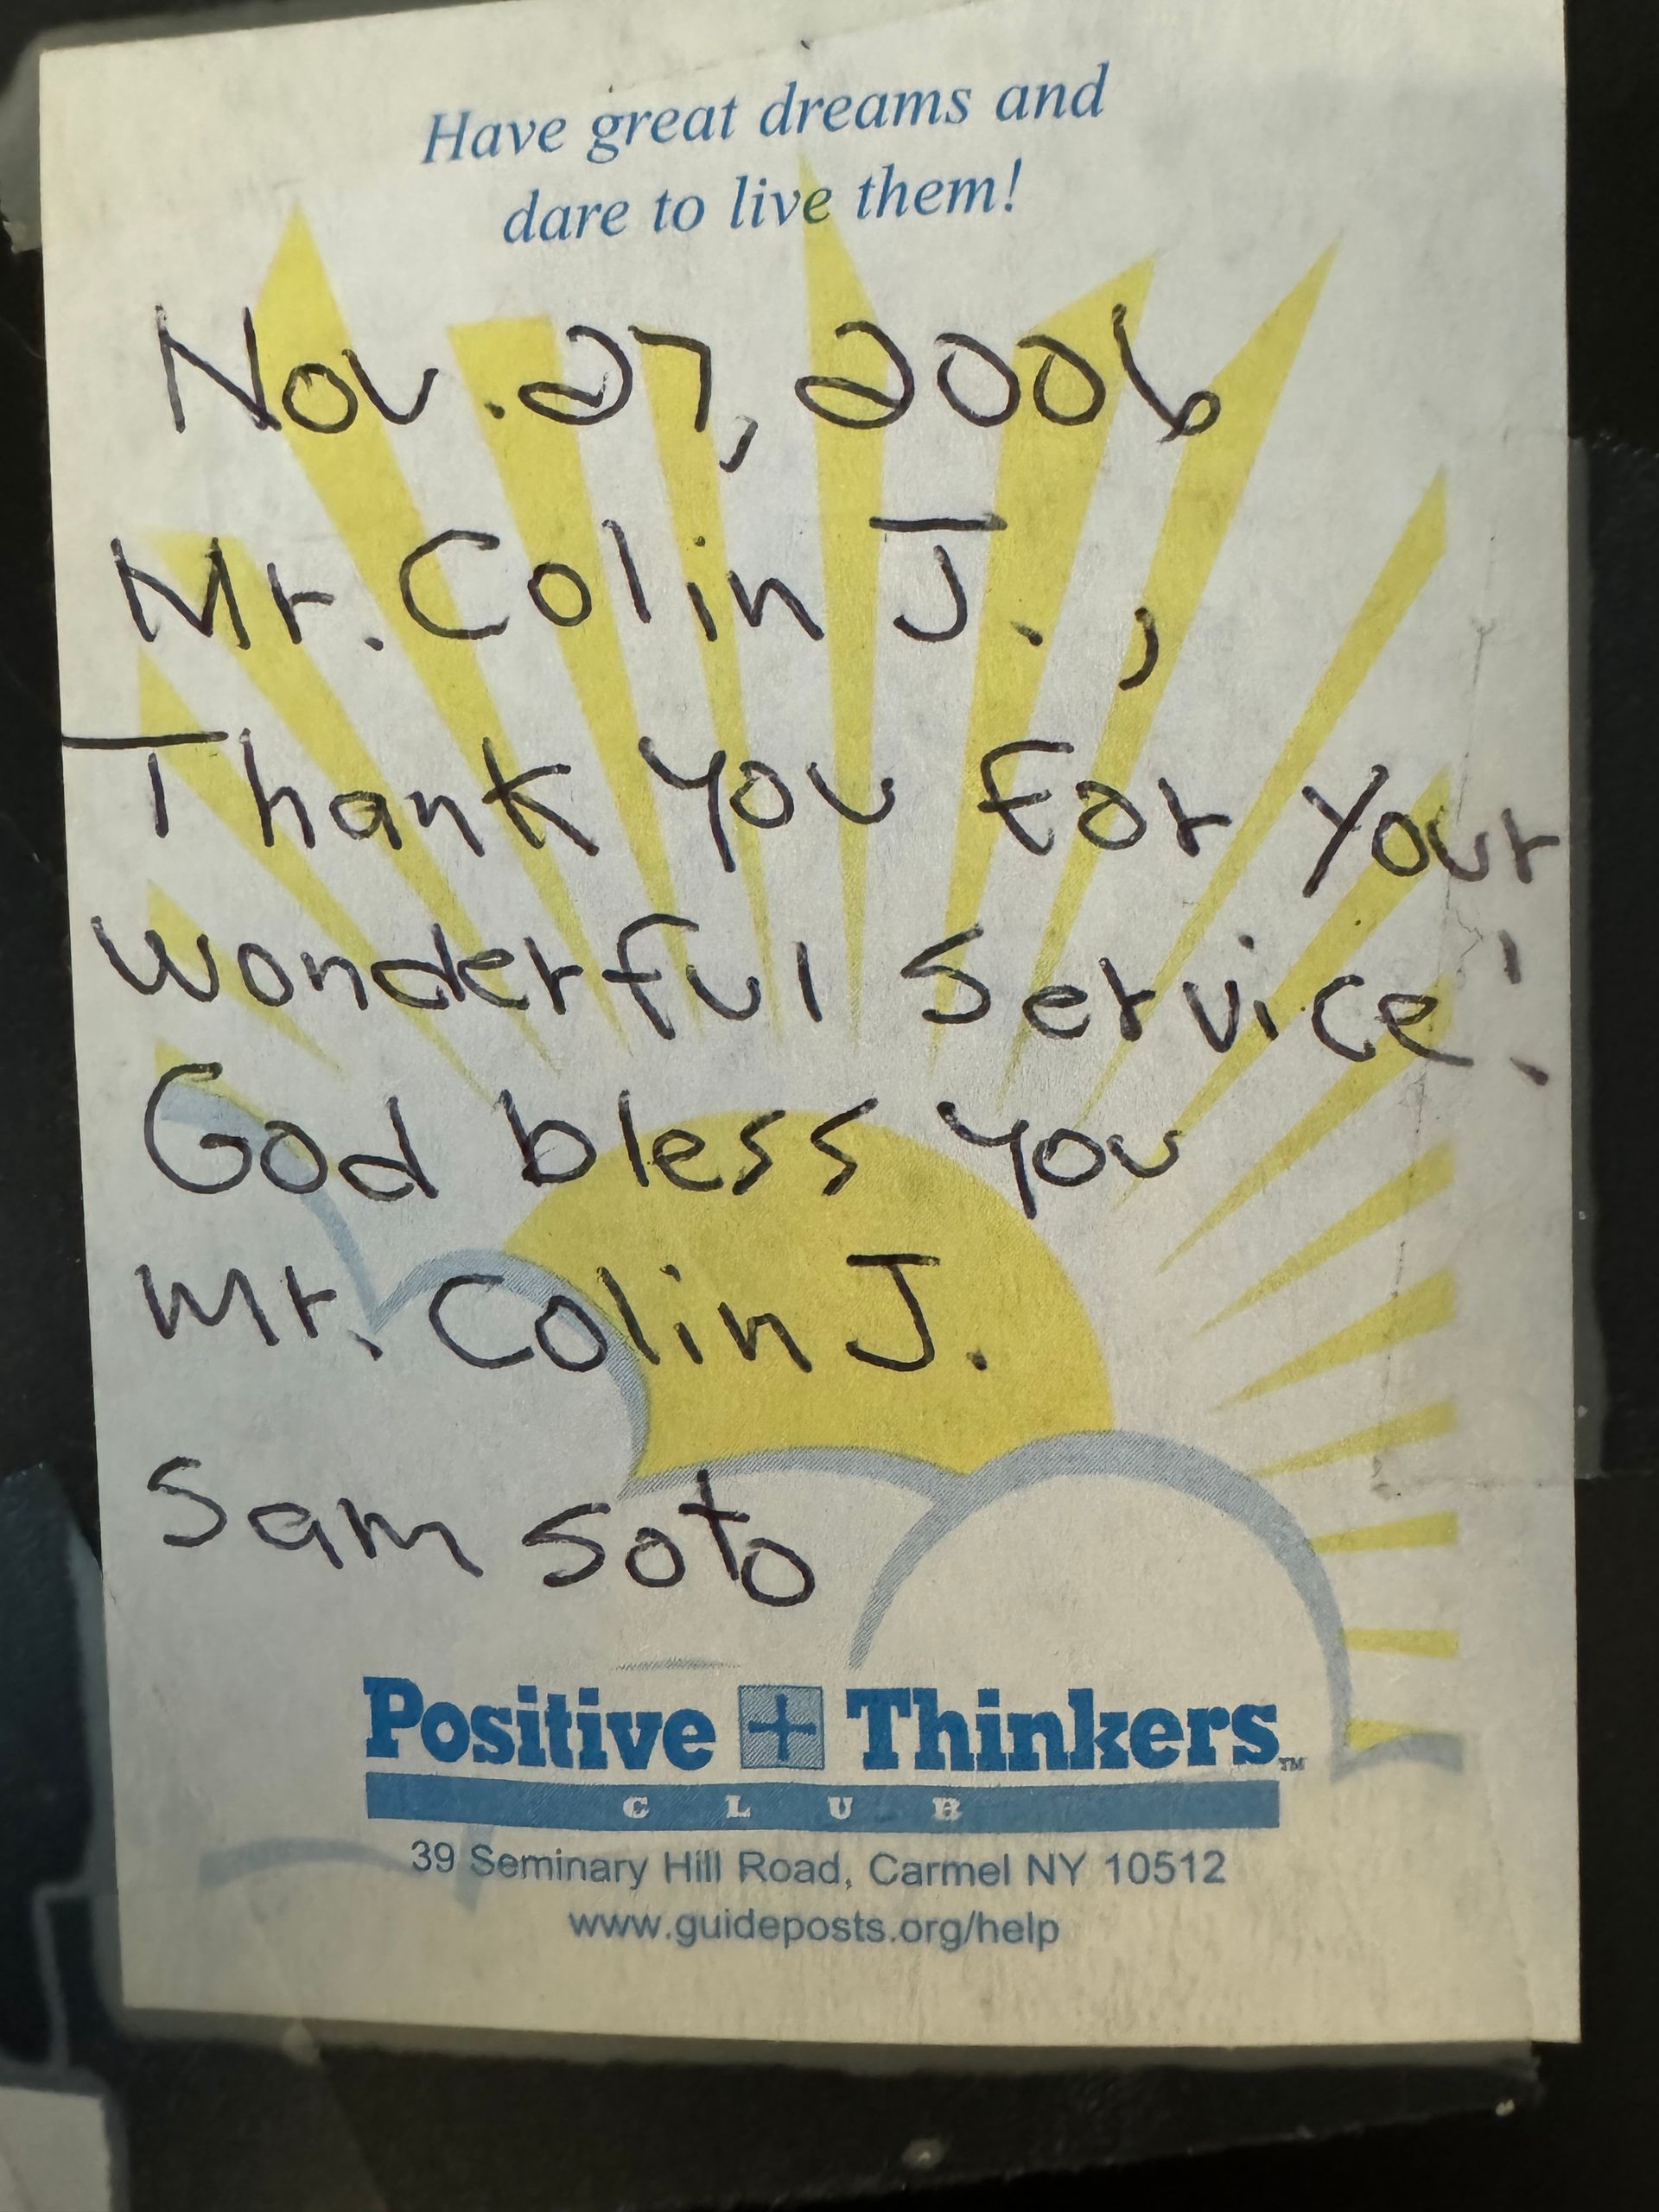 Have great dreams and
dare to live them!
Nov. 27, 2006
Mr. Colin J.,
Thank you for your
wonderful service!
God bless you
Mr. Colin J.
Sam Soto
Positive + Thinkers™
CLUB
39 Seminary Hill Road, Carmel NY 10512
www.guideposts.org/help